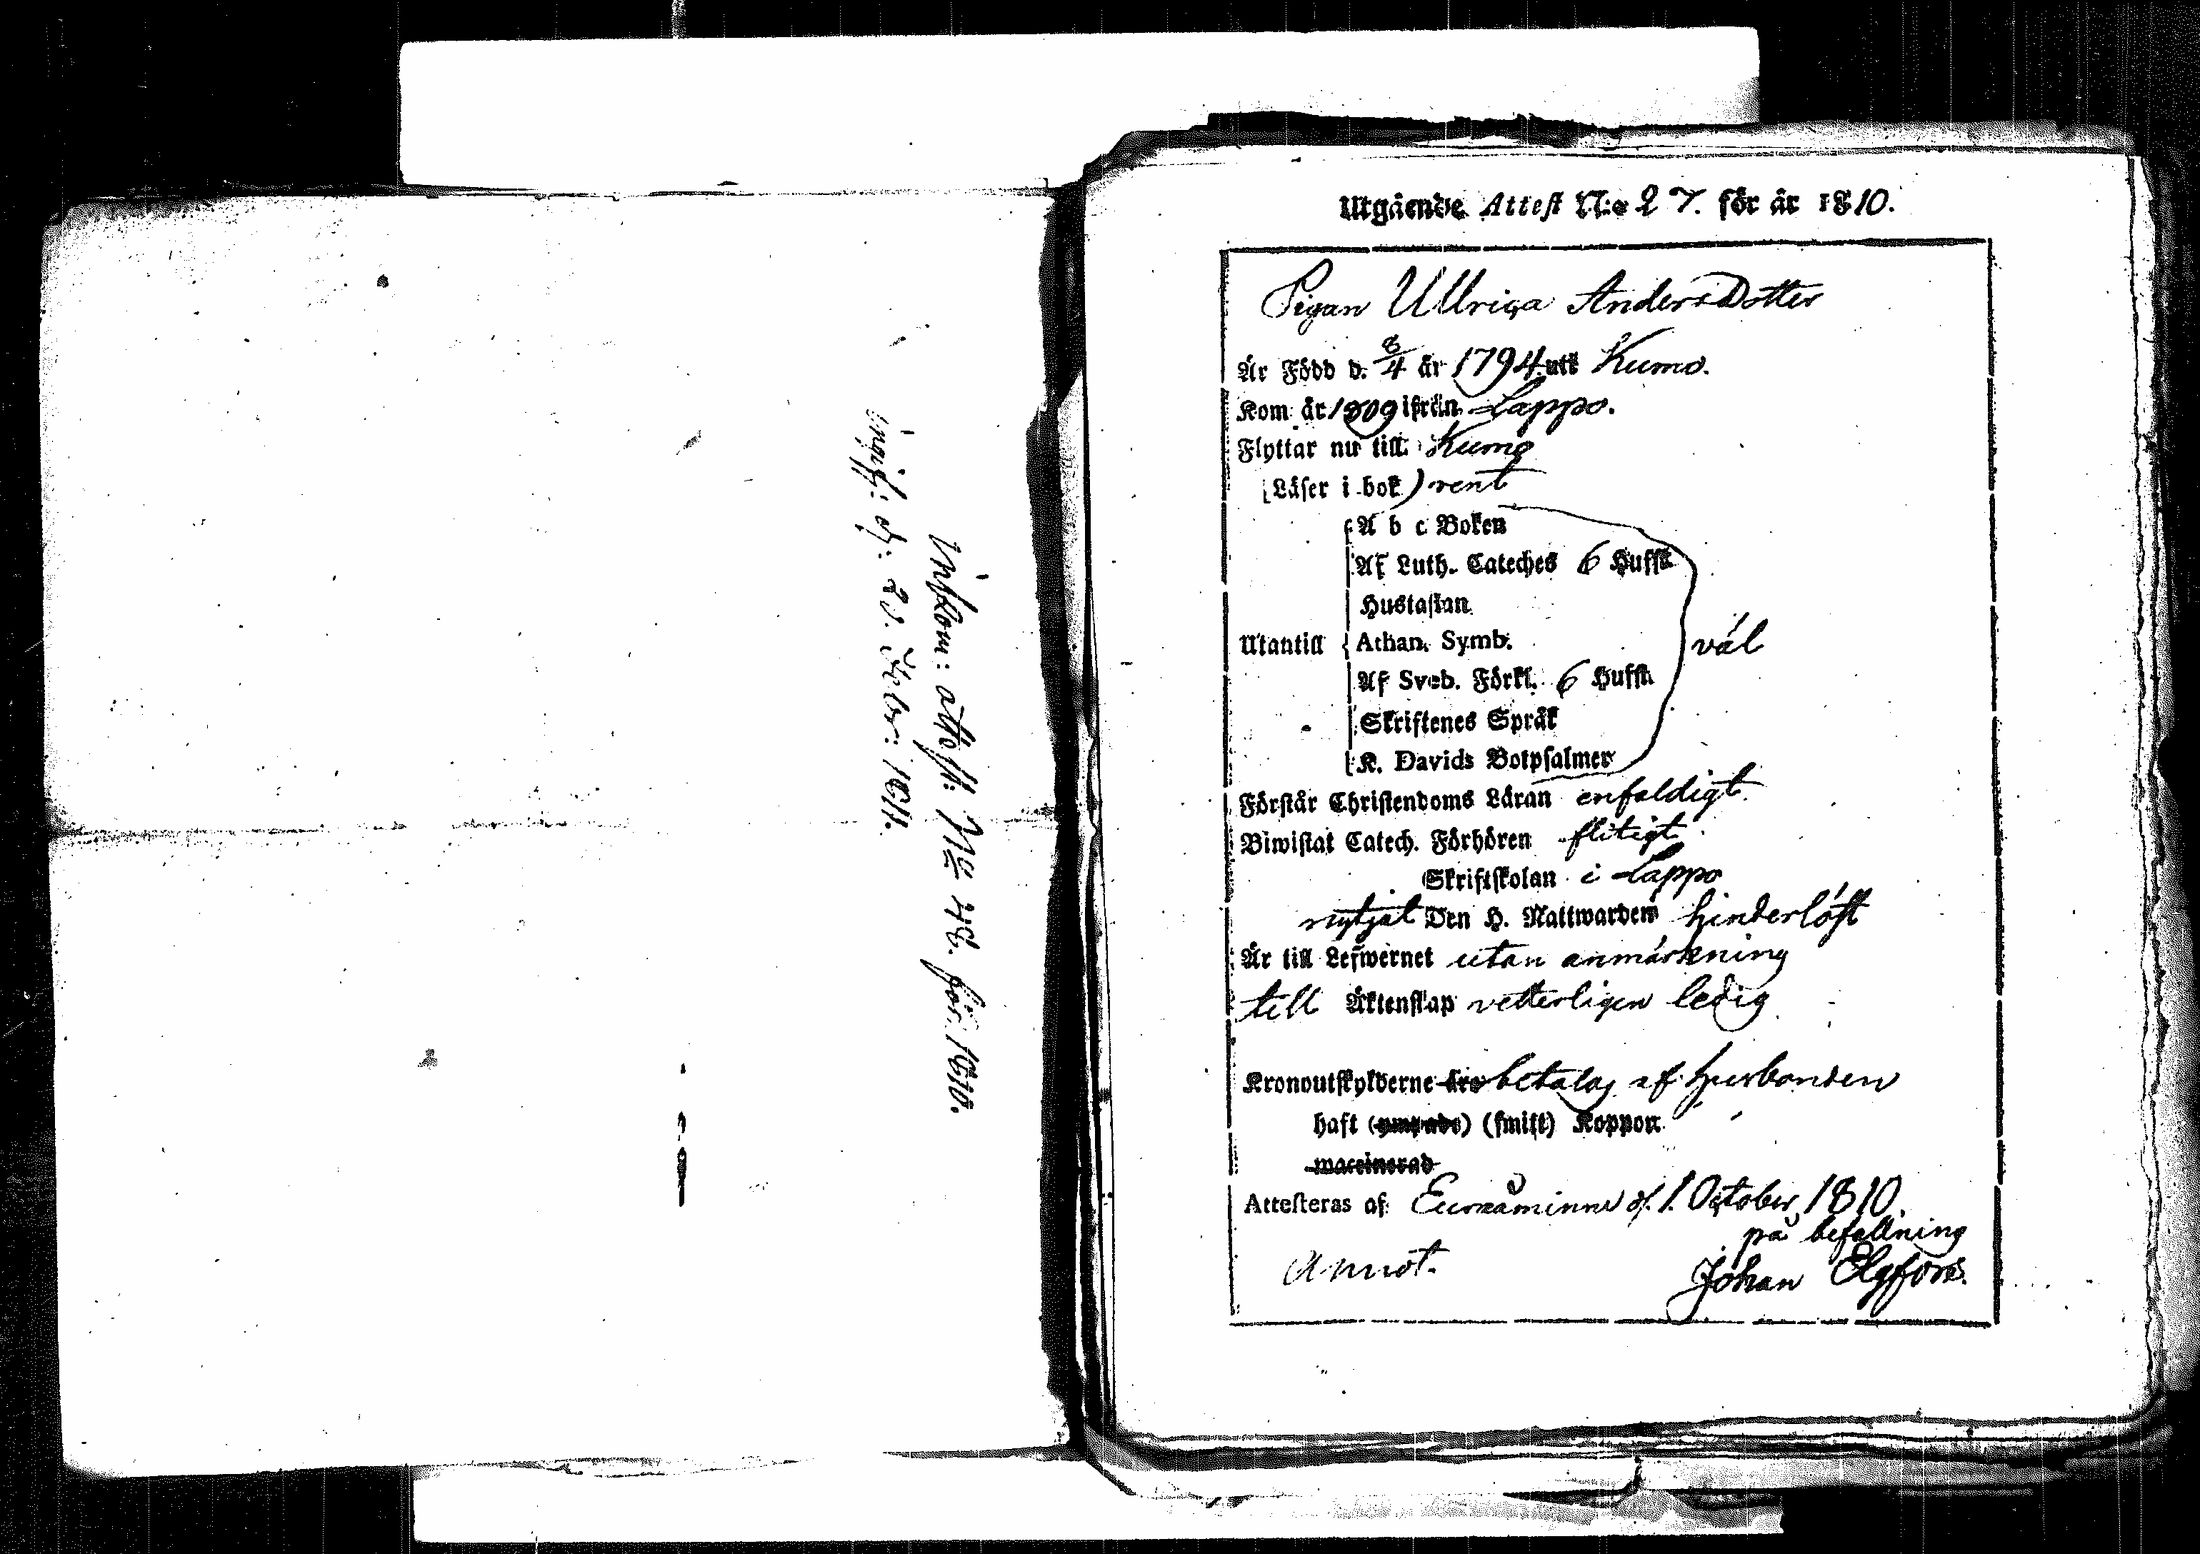 Inkom: attest: No 48. för 1810.
Utgående Attest N:o 27. för år 1810.
Pigan Ullrica AndersDotter
Är Född d. 8/4 år 1794 uti Kumo.
Kom år 1809 ifrån Lappo.
Flyttar nu till Kumo
(Läser i bok) rent
A b c Boken
Af Luth. Cateches 6 Hufst
Hustaflan
Utantill Athan. Symb. väl
Af Sveb. Förkl. 6 Hufst.
Skriftenes Språk
K. Davids Botpsalmer
Förstår Christendoms Läran enfaldigt.
Biwistat Catech. Förhören flitigt
Skriftskolan i Lappo
nytjat Den H. Nattwarden hinderlöst
Är till Lefwernet utan anmärkning
till Äktenskap vetterligen ledig
Kronoutskylderne äro betalas af husbonden
haft (ympade) (smitt) Koppor
waccinerad
Attesteras af Euraåminne d. 1. October 1810.
på befallning
Annot. Johan Elgfors.